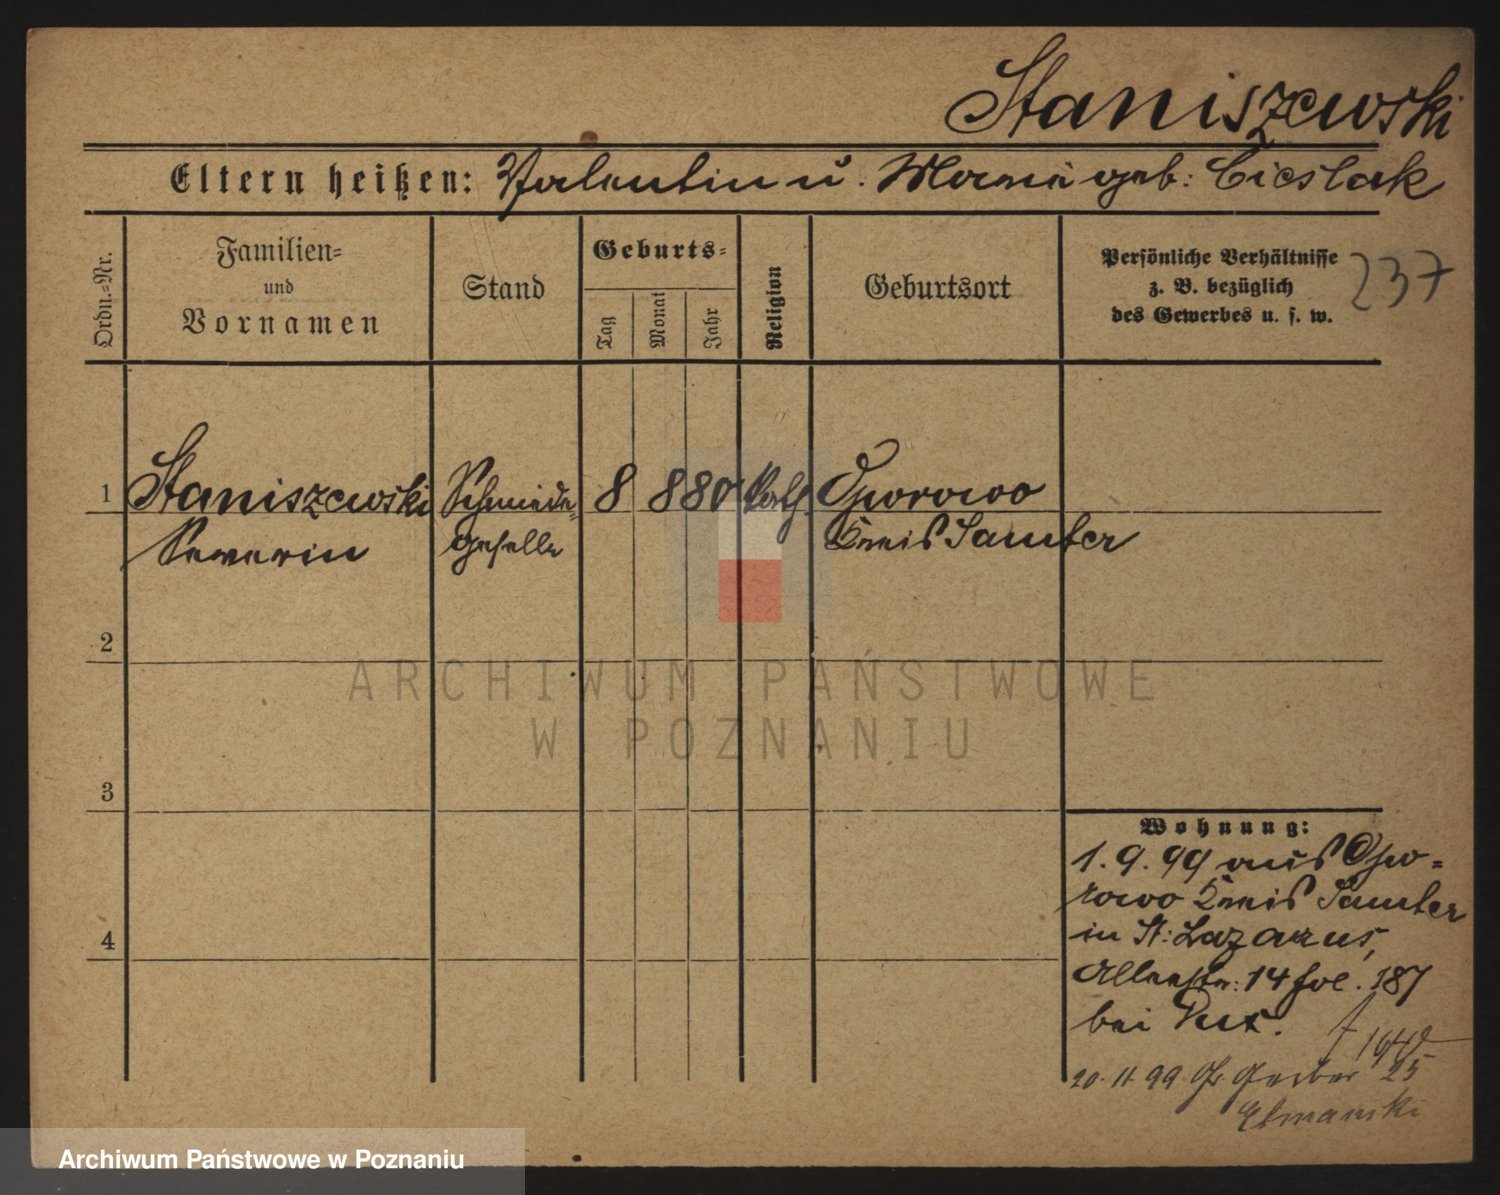 Staniszewski
Eltern heißen: Valentin u. Marie geb: Cieslak
Ordn.-Nr.
Familien-
und
Vornamen
Stand
Geburts-
Tag
Monat
Jahr
Religion
Geburtsort
Persönliche Verhältnisse
z. B. bezüglich
des Gewerbes u. s. w.
237
1 Staniszewski Schmiede- 8 8 80 kath. Oporowo
Severin geselle Kreis Samter
2
3
4
Wohnung:
1.9.99 aus Opo-
rowo Kreis Samter
in St: Lazarus,
14 fol. 187
bei
20.11.99 Gr Gerber 25
ARCHIWUM PAŃSTWOWE
W POZNANIU
Archiwum Państwowe w Poznaniu